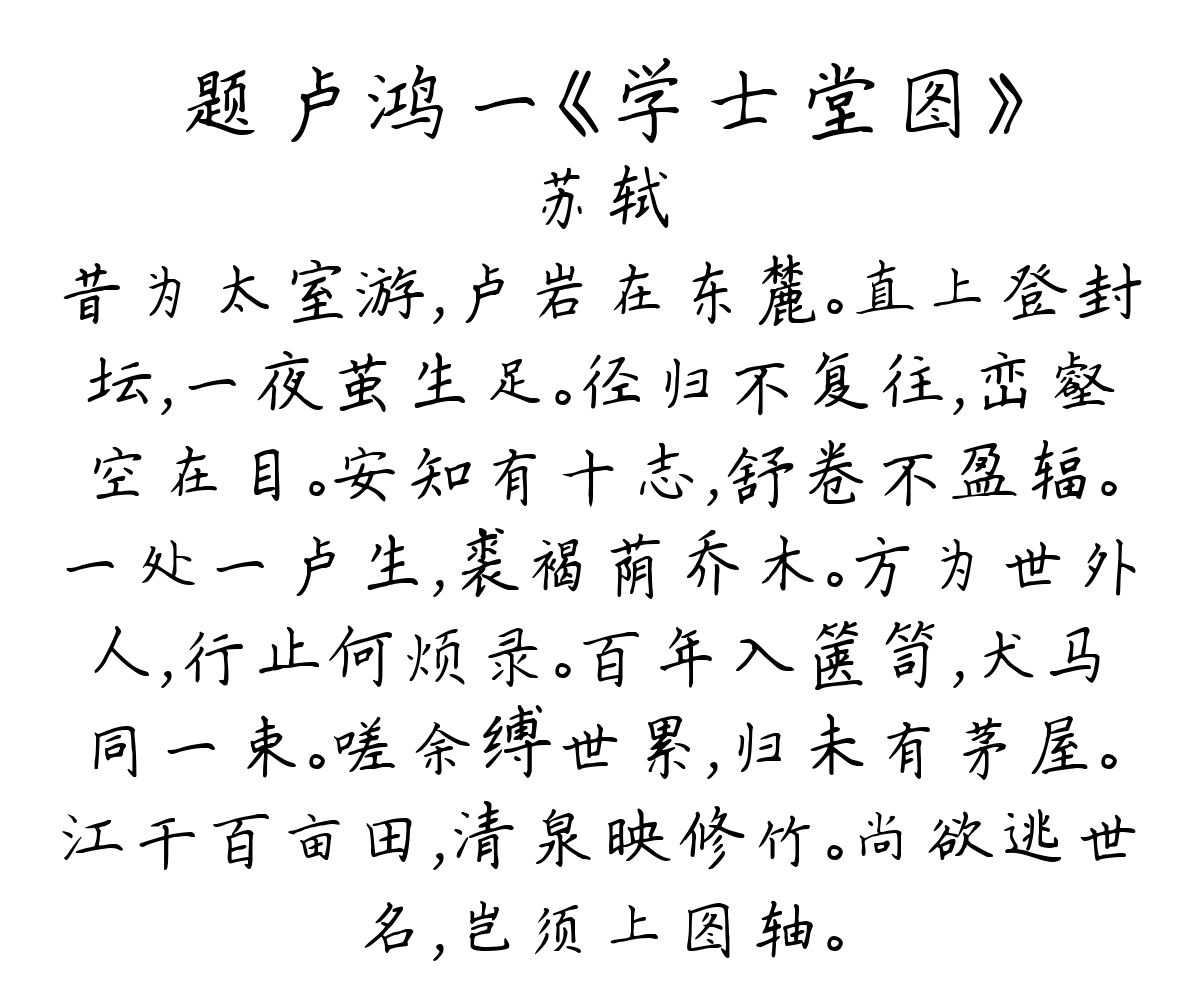 题卢鸿一《学士堂图》
苏轼
昔为太室游,卢岩在东麓。直上登封
坛,一夜茧生足。径归不复往,峦壑
空在目。安知有十志,舒卷不盈辐。
一处一卢生,裘褐荫乔木。方为世外
人,行止何烦录。百年入箧笥,犬马
同一束。嗟余缚世累,归未有茅屋。
江干百亩田,清泉映修竹。尚欲逃世
名,岂须上图轴。